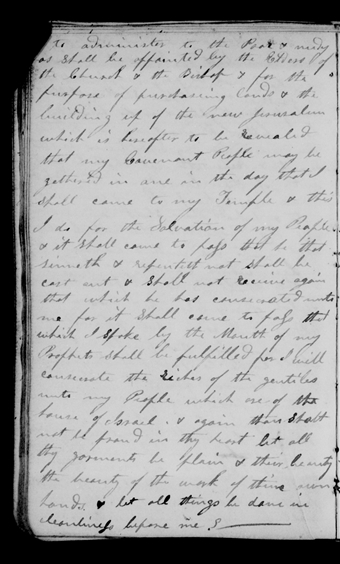 to administer to the Poor & needy
as shall be appointed by the Elders of
the Church & the Bishop & for the
purpose of purchasing lands & the
building up of the new Jerusalem
which is hereafter to be revealed
that my Covenant People may be
gethered in one in the day that I
shall came to my Temple & this
I do for the Salvation of my People
& it shall came to pass that he that
sinneth & repenteth not shall be
cast out & shall not receive again
that which he has consecrated unto
me for it shall came to pass that
which I spoke by the Mouth of my
Prophets shall be fulfilled for I will
consecrate the riches of the gentiles
unto my People which are of the
house of Israel & again thou shalt
not be proud in thy heart let all
thy garments be plain & their beauty
the beauty of the work of thine own
hands & let all things be done in
cleanliness before me